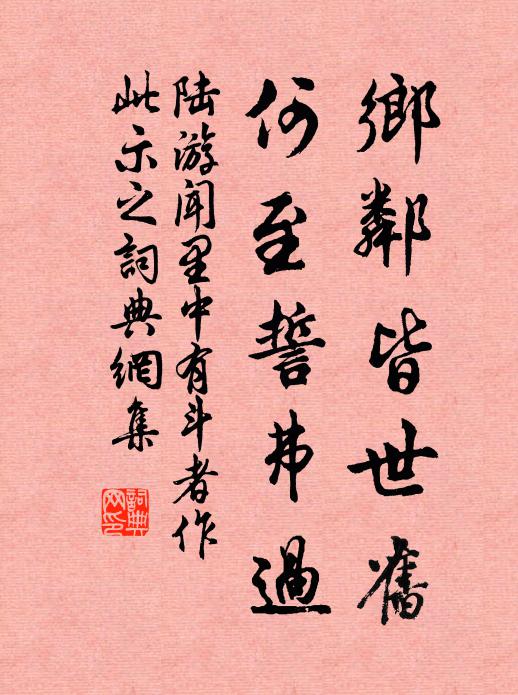 鄉鄰皆世舊
何至誓弗過
陆游闻里中有斗者作
此示之詞典網集
詞典网印